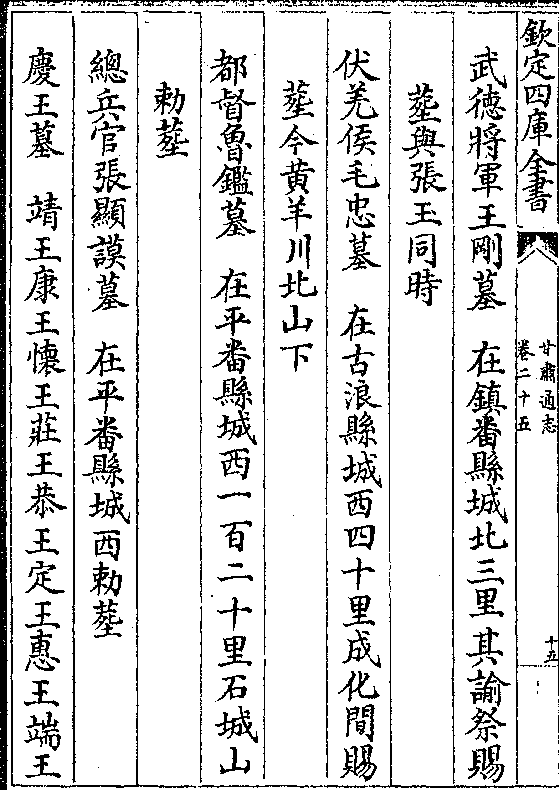 欽定四庫全書
甘肅通志
卷二十五
十五
武德將軍王剛墓　在鎮番縣城北三里其諭祭賜
塟與張玉同時
伏羌侯毛忠墓　在古浪縣城西四十里成化間賜
塟今黄羊川北山下
都督魯鑑墓　在平番縣城西一百二十里石城山
勅塟
總兵官張顯謨墓　在平番縣城西勅塟
慶王墓　靖王康王懷王莊王恭王定王惠王端王